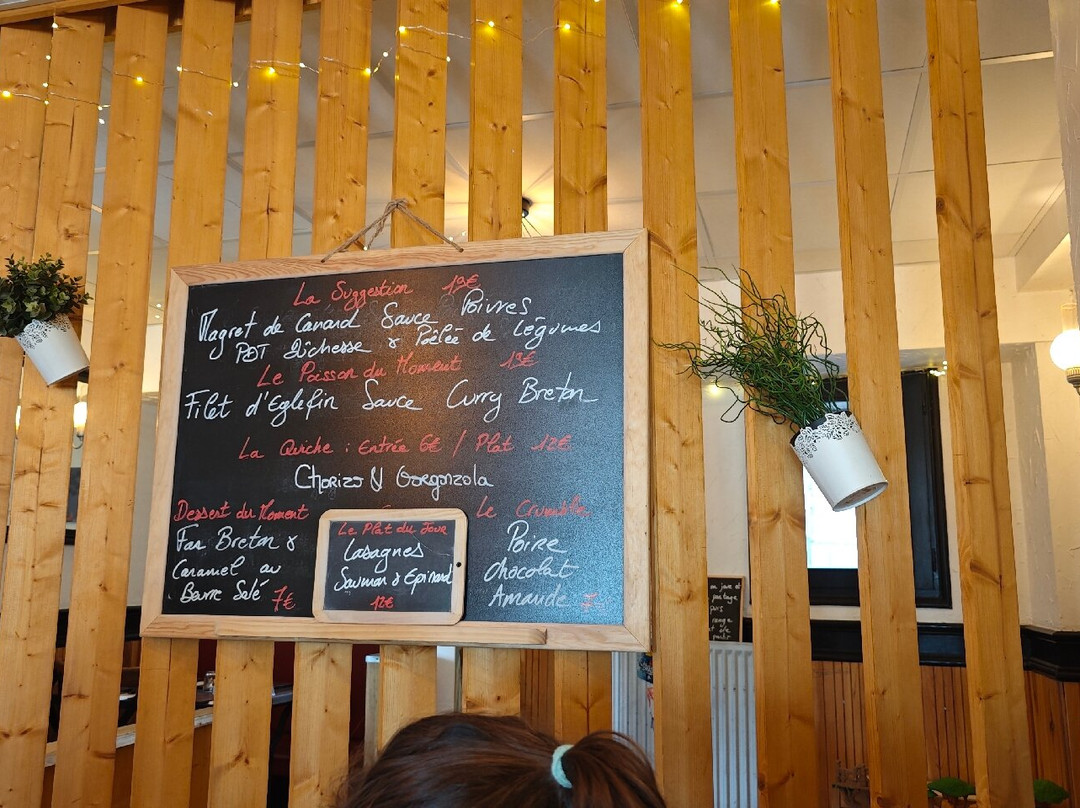 La Suggestion 19€
Magret de Canard Sauce Poivres
PDT Dûchesse & Poêlée de légumes
Le Poisson du Moment 19€
Filet d'Eglefin Sauce Curry Breton
La Quiche : Entrée 6€ / Plat 12€
Chorizo & Gorgonzola
Dessert du Moment
Far Breton &
Caramel au
Beurre Salé 7€
Le Plat du Jour
Lasagnes
Saumon & Epinard
12€
Le Crumble
Poire
Chocolat
Amande 7.-